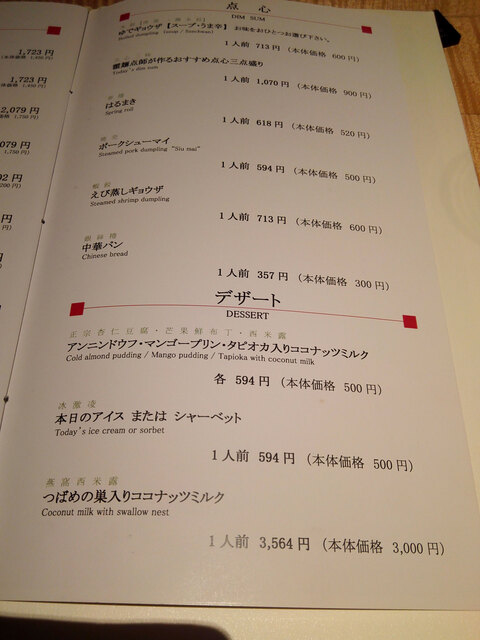 1,723 円
(本体価格 1,450 円)
1,723 円
(本体価格 1,450 円)
2,079 円
1,750 円)
079 円
1,750 円)
92 円
200 円)
円
円)
円
円
点 心
DIM SUM
ゆでギョウザ【スープ・うま辛】 お味をおひとつお選び下さい。
Boiled dumpling (soup / Szechwan)
1 人前 713 円 (本体価格 600 円)
麺点師が作るおすすめ点心三点盛り
Today's dim sum
1 人前 1,070 円 (本体価格 900 円)
はるまき
Spring roll
1 人前 618 円 (本体価格 520 円)
ポークシューマイ
Steamed pork dumpling "Siu mai"
1 人前 594 円 (本体価格 500 円)
えび蒸しギョウザ
Steamed shrimp dumpling
1 人前 713 円 (本体価格 600 円)
中華パン
Chinese bread
1 人前 357 円 (本体価格 300 円)
デザート
DESSERT
正宗杏仁豆腐・芒果鮮布丁・西米露
アンニンドウフ・マンゴープリン・タピオカ入りココナッツミルク
Cold almond pudding / Mango pudding / Tapioka with coconut milk
各 594 円 (本体価格 500 円)
冰激凌
本日のアイス または シャーベット
Today's ice cream or sorbet
1 人前 594 円 (本体価格 500 円)
燕窩西米露
つばめの巣入りココナッツミルク
Coconut milk with swallow nest
1 人前 3,564 円 (本体価格 3,000 円)